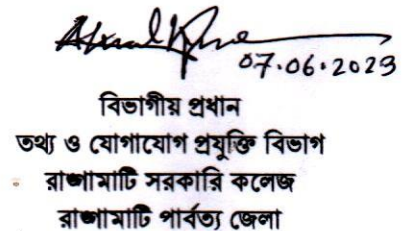 07.06.2023
বিভাগীয় প্রধান
তথ্য ও যোগাযোগ প্রযুক্তি বিভাগ
রাঙ্গামাটি সরকারি কলেজ
রাঙ্গামাটি পার্বত্য জেলা